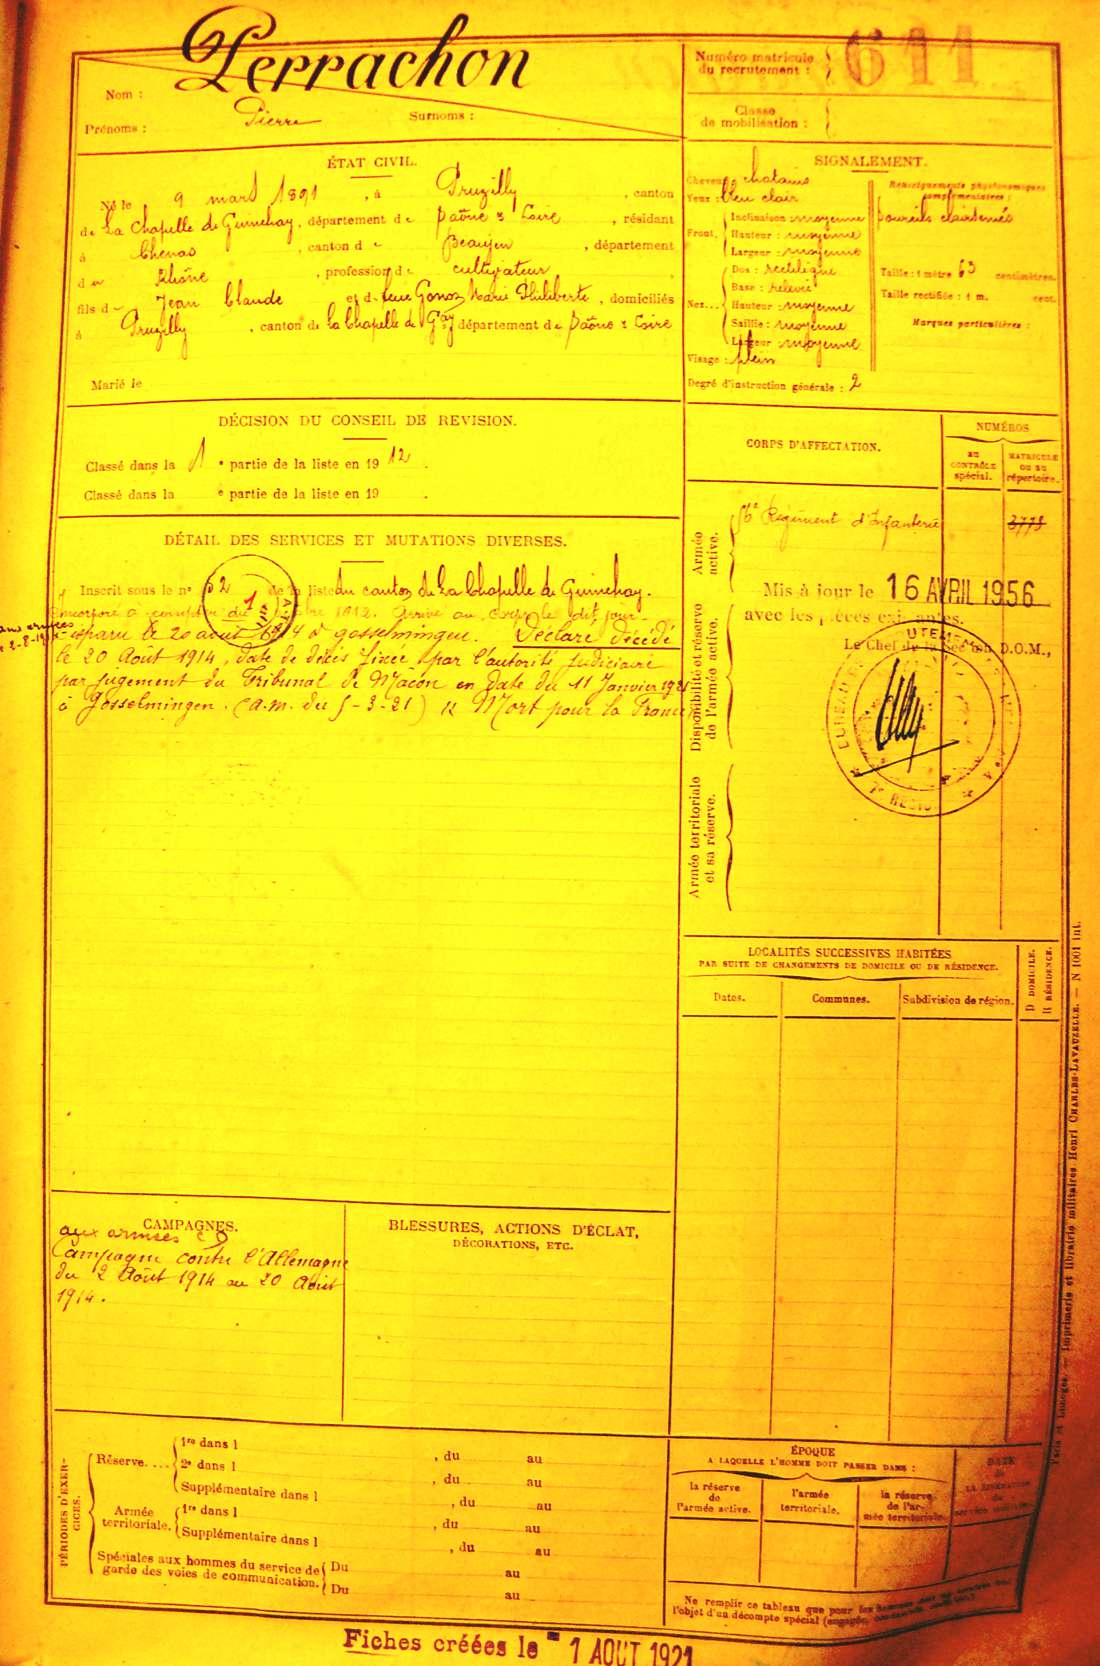 Perrachon
Nom :
Prénoms : Pierre Surnoms :
Numéro matricule
du recrutement : 611
Classe
de mobilisation :
ÉTAT CIVIL.
Né le 9 mars 1891, à Pruzilly, canton
de La Chapelle de Guinchay, département de Saône & Loire, résidant
à Chenas, canton de Beaujeu, département
du Rhône, profession de cultivateur
fils de Jean Claude et de feue Gonoz Marie Philiberte, domiciliés
à Pruzilly, canton de La Chapelle de Gay département de Saône & Loire
Marié le
SIGNALEMENT.
Cheveux : chatains
Yeux : bleu clair
Front. Inclinaison : moyenne
Hauteur : moyenne
Largeur : moyenne
Nez... Dos : rectiligne
Base : relevée
Hauteur : moyenne
Saillie : moyenne
Largeur : moyenne
Visage : plein
Degré d'instruction générale : 2
Renseignements physionomiques
complémentaires :
sourcils clairsemés
Taille : 1 mètre 63 centimètres.
Taille rectifiée : 1 m. cent.
Marques particulières :
DÉCISION DU CONSEIL DE REVISION.
Classé dans la 1 e partie de la liste en 1912.
Classé dans la e partie de la liste en 19 .
DÉTAIL DES SERVICES ET MUTATIONS DIVERSES.
Inscrit sous le n° 52 de la liste du canton de La Chapelle de Guinchay.
Incorporé à compter du 1912. Arrivé au corps le dit jour
aux armées
le 2-8-14
disparu le 20 août 1914 à Gosselmingen. Déclaré décédé
le 20 Août 1914, date de décès fixée par l'autorité judiciaire
par jugement du Tribunal de Macon en date du 11 Janvier 1921
à Gosselmingen. (a.m. du 5-3-21) Mort pour la France
CORPS D'AFFECTATION.
NUMÉROS
AU CONTRÔLE spécial.
MATRICULE OU AU répertoire.
Armée
active.
Régiment d'Infanterie
3779
Disponibilité et réserve
de l'armée active.
Armée territoriale
et sa réserve.
Mis à jour le 16 AVRIL 1956
avec les pièces existantes.
Le Chef de la Section D.O.M.,
LOCALITÉS SUCCESSIVES HABITÉES
PAR SUITE DE CHANGEMENTS DE DOMICILE OU DE RÉSIDENCE.
Dates.
Communes.
Subdivision de région.
D DOMICILE.
R RÉSIDENCE.
CAMPAGNES.
aux armées
Campagne contre l'Allemagne
du 2 Août 1914 au 20 Août
1914.
BLESSURES, ACTIONS D'ÉCLAT,
DÉCORATIONS, ETC.
PÉRIODES D'EXER-
CICES.
Réserve.... 1re dans l , du au
2e dans l , du au
Supplémentaire dans l , du au
Armée
territoriale. 1re dans l , du au
Supplémentaire dans l , du au
Spéciales aux hommes du service de
garde des voies de communication. Du au
Du au
ÉPOQUE
A LAQUELLE L'HOMME DOIT PASSER DANS :
la réserve
de
l'armée active.
l'armée
territoriale.
la réserve
de l'ar-
mée territoriale.
DATE
de
LA LIBÉRATION
du
service militaire.
Ne remplir ce tableau que pour les
l'objet d'un décompte spécial
Paris et Limoges. — Imprimerie et librairie militaires Henri CHARLES-LAVAUZELLE. — N 1001 int.
Fiches créées le 1 AOUT 1921